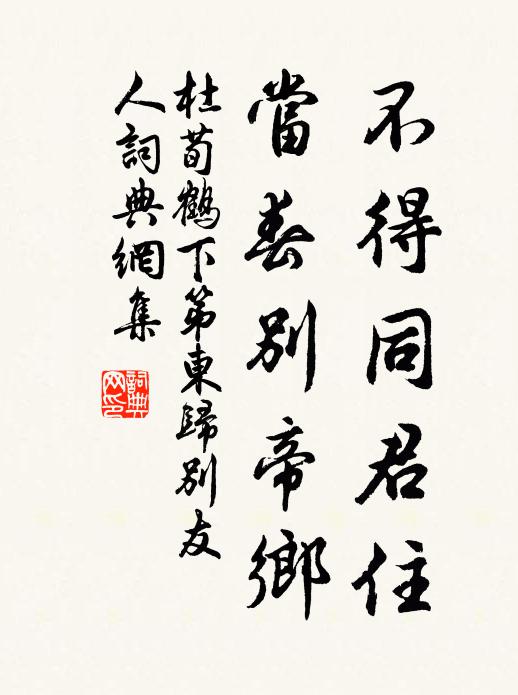 不得同君住
當春別帝鄉
杜荀鶴下第東歸別友
人詞典網集
詞典网印